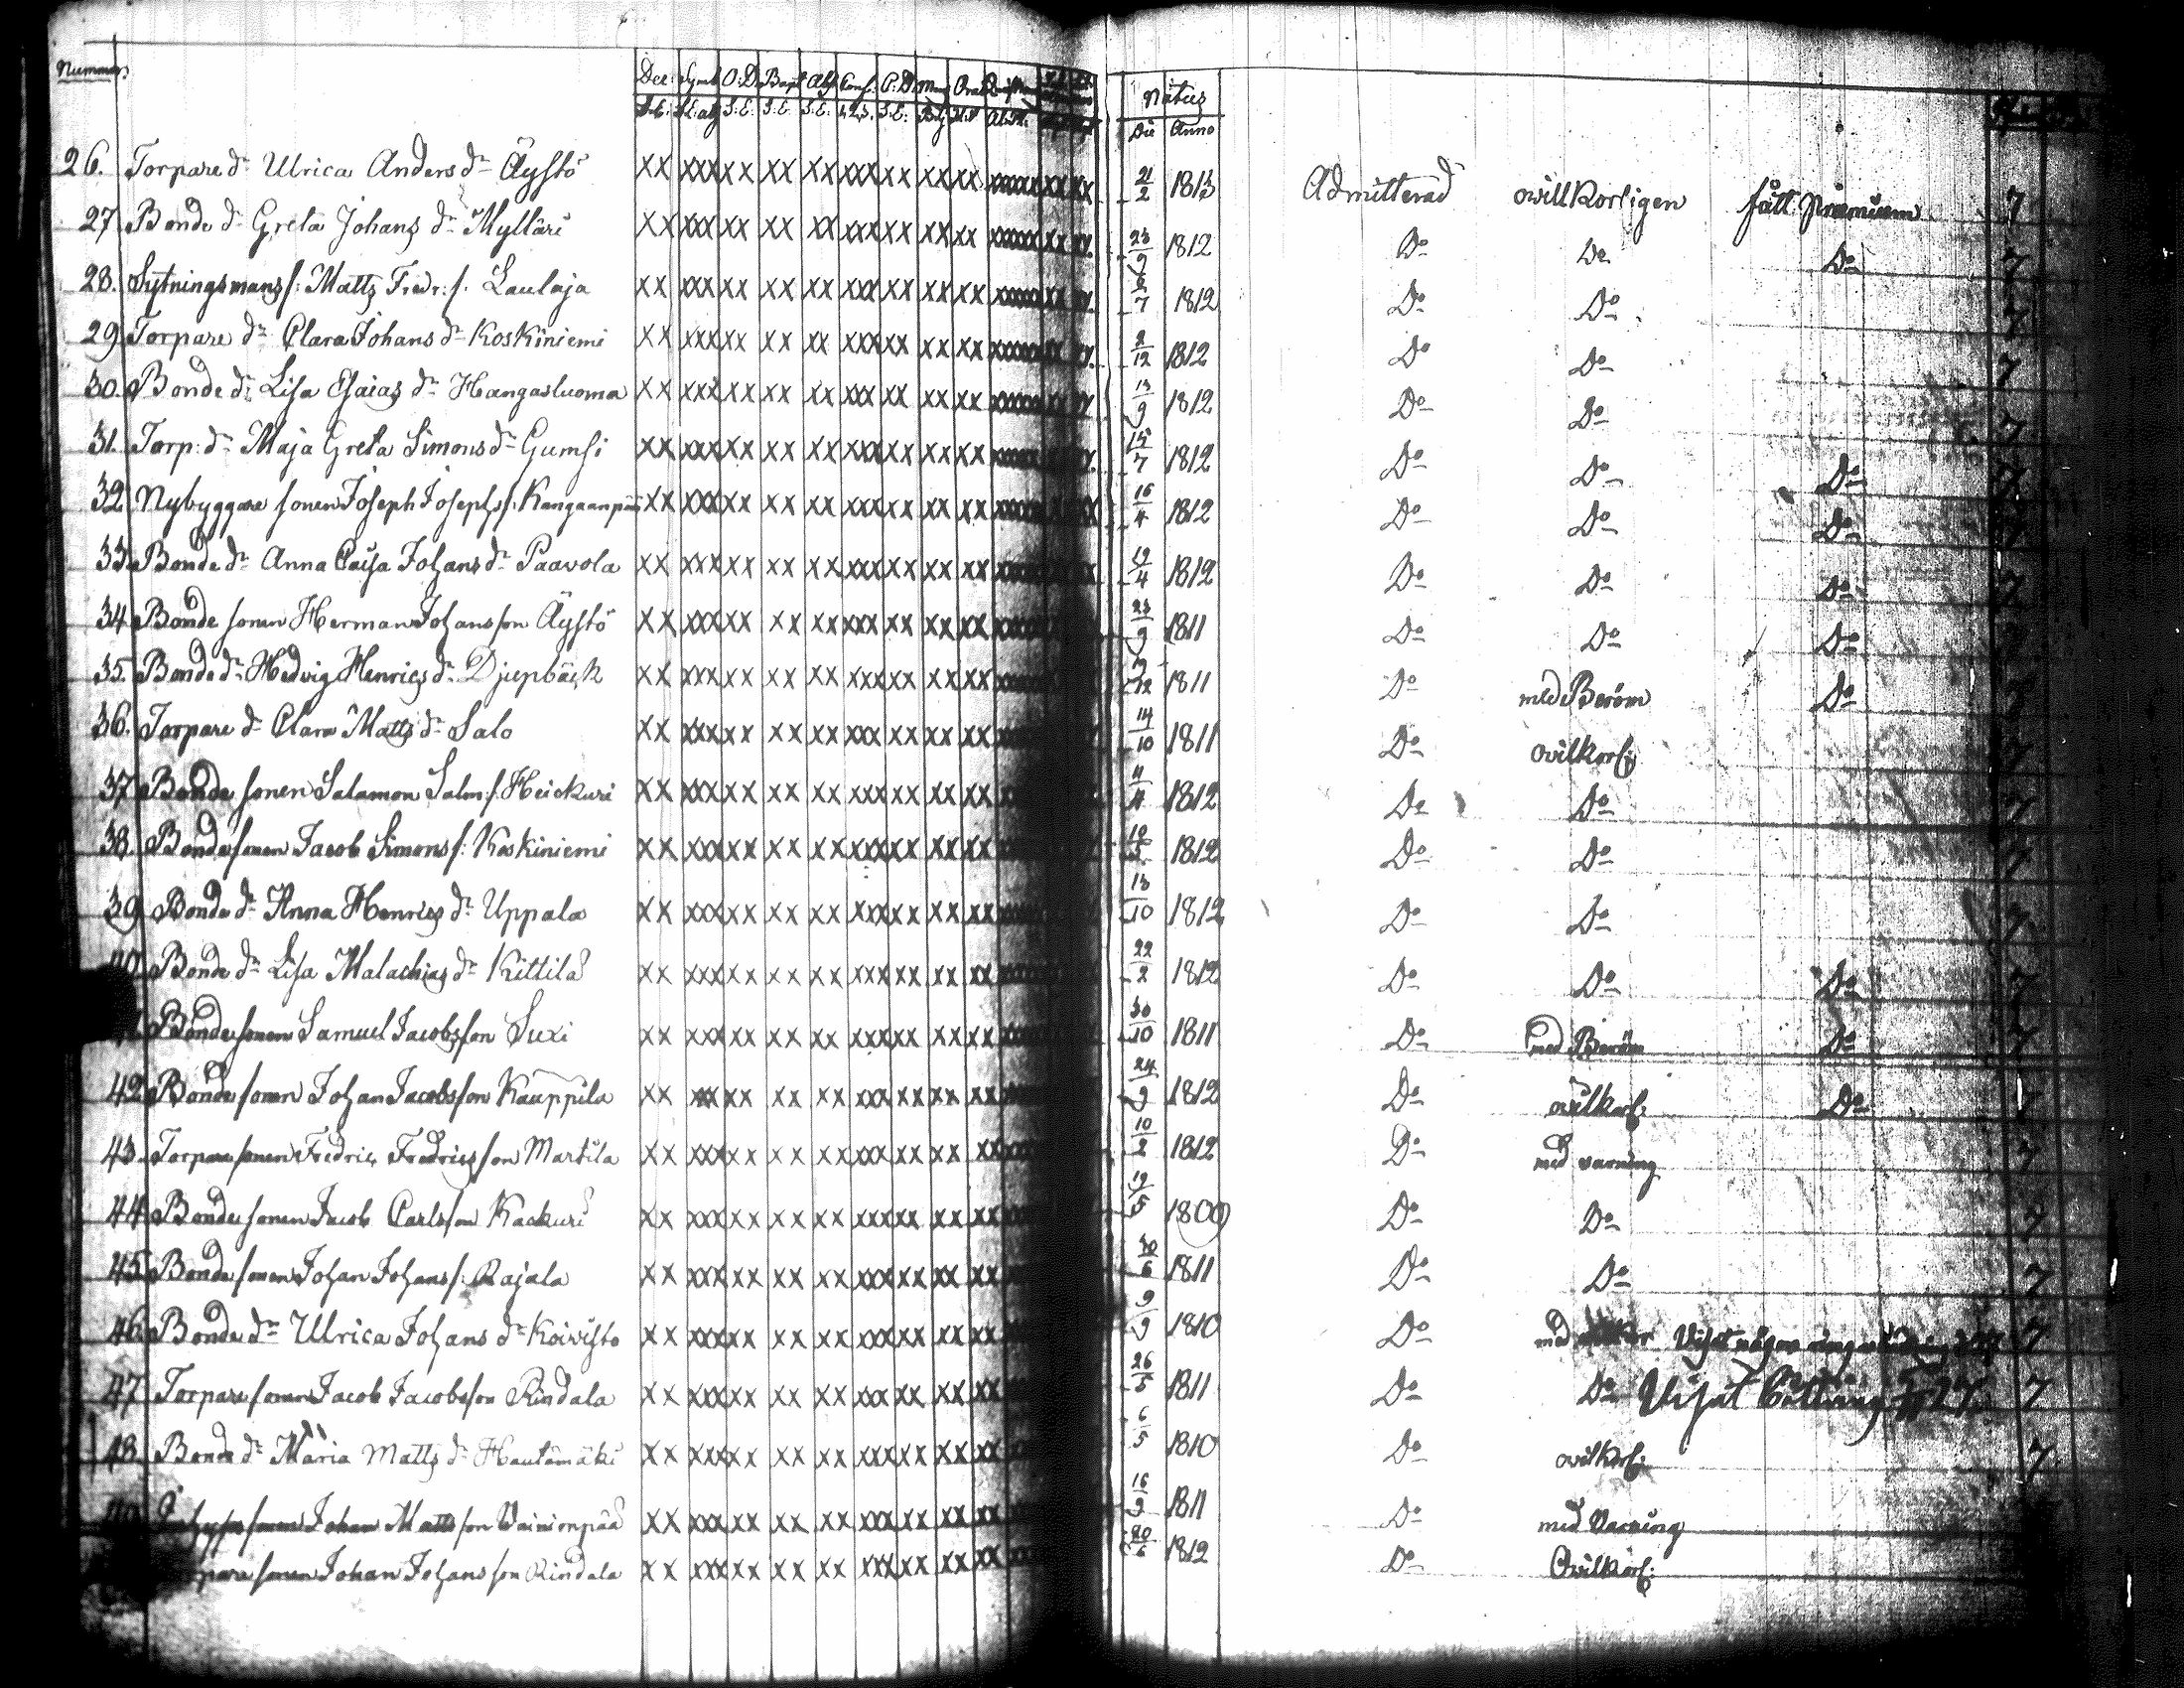 Nummer Dec: Symb O:D Bapt Abs Conf. C:D Mens Orat Natus
S.E: S.E. S.E S.E: 1.2.3. S.E: Die Anno
26. Torpare dr Ulrica Anders dr Äystö xx xxx xx xx xx xxx xx xx xx xxxxx xx xx 21/2 1813 Admitterad owillkorligen fått præmium 7
27 Bonde dr Greta Johans dr Mylläri xx xxx xx xx xx xxx xx xx xx xxxxx xx xx. 23/9 1812 Do Do Do 7
28. Sytningsmans s: Matts Fredr: s. Laulaja xx xxx xx xx xx xxx xx xx xx xxxxx xx xx. 2/7 1812 Do Do 7
29 Torpare dr Clara Johans dr Koskiniemi xx xxx xx xx xx xxx xx xx xx xxxxx xx xx. 2/12 1812 Do Do 7
30. Bonde dr Lisa Esaias dr Hangasluoma xx xxx xx xx xx xxx xx xx xx xxxxx xx xx 13/9 1812 Do Do 7
31. Torp: dr Maja Greta Simons dr Gumsi xx xxx xx xx xx xxx xx xx xx xxxxx xx xx. 15/7 1812 Do Do Do 7
32 Nybyggare sonen Joseph Josephs s: Kangaanpää xx xxx xx xx xx xxx xx xx xx xxxxx xx xx 16/4 1812 Do Do Do 7
33. Bonde dr Anna Caisa Johans dr Paavola xx xxx xx xx xx xxx xx xx xx 19/4 1812 Do Do Do 7
34 Bonde sonen Herman Johansson Äystö xx xxx xx xx xx xxx xx xx xx 23/9 1811 Do Do Do 7
35. Bonde dr Hedvig Henrics dr Djupbäck xx xxx xx xx xx xxx xx xx xx 1811 Do med Beröm Do 7
36. Torpare dr Clara Matts dr Salo xx xxx xx xx xx xxx xx xx xx 14/10 1811 Do ovilkorl: 7
37 Bonde sonen Salamon Salm: s. Heickuri xx xxx xx xx xx xxx xx xx xx 11/11 1812 Do Do 7
38. Bondesonen Jacob Simons s: Koskiniemi xx xxx xx xx xx xxx xx xx xx 1812 Do Do 7
39 Bonde dr Anna Henrics dr Uppala xx xxx xx xx xx xxx xx xx xx 13/10 1812 Do Do 7
40. Bonde dr Lisa Malachias dr Kittilä xx xxx xx xx xx xxx xx xx xx 22/2 1812 Do Do Do 7
Bondesonen Samuel Jacobsson Suxi xx xxx xx xx xx xxx xx xx xx 30/10 1811 Do med Beröm Do 7
42 Bondesonen Johan Jacobsson Kauppila xx xxx xx xx xx xxx xx xx xx 24/9 1812 Do ovilkorl: Do 7
43. Torparesonen Fredric Fredricsson Martila xx xxx xx xx xx xxx xx xx xx 10/2 1812 Do med varning 7
44 Bondesonen Jacob Carlsson Kackuri xx xxx xx xx xx xxx xx xx xx 19/5 1809 Do Do 7
45 Bondesonen Johan Johans s: Rajala xx xxx xx xx xx xxx xx xx xx 30/6 1811 Do Do 7
46. Bonde dr Ulrica Johans dr Koivisto xx xxx xx xx xx xxx xx xx xx 9/9 1810 Do med Visat någon 7
47 Torparesonen Jacob Jacobsson Rindala xx xxx xx xx xx xxx xx xx xx 26/5 1811 Do Do Visat bättring 7
48. Bonde dr Maria Matts dr Hautamäki xx xxx xx xx xx xxx xx xx xx 6/5 1810 Do ovilkorl: 7
sonen Johan Mattsson Vainionpää xx xxx xx xx xx xxx xx xx xx 16/9 1811 Do med Varning
sonen Johan Johansson Rindala xx xxx xx xx xx xxx xx xx xx 20/6 1812 Do Ovilkorl: